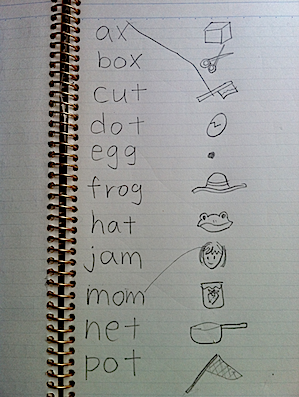 ax
box
cut
dot
egg
frog
hat
jam
mom
net
pot